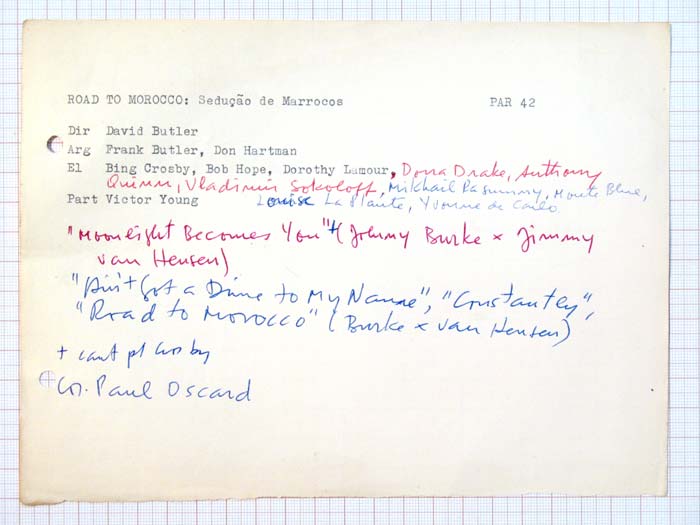 ROAD TO MOROCCO: Sedução de Marrocos PAR 42
Dir David Butler
Arg Frank Butler, Don Hartman
El Bing Crosby, Bob Hope, Dorothy Lamour, Dona Drake, Anthony
Quinn, Vladimir Sokoloff, Mikhail Rasummy, Monte Blue,
Louise La Plante, Yvonne de Carlo
Part Victor Young
"Moonlight Becomes You" + (Johnny Burke x Jimmy
van Heusen)
"Ain't Got a Dime to My Name", "Constantly",
"Road to Morocco" (Burke x van Heusen)
+ cant p/ Crosby
Cor. Paul Oscard